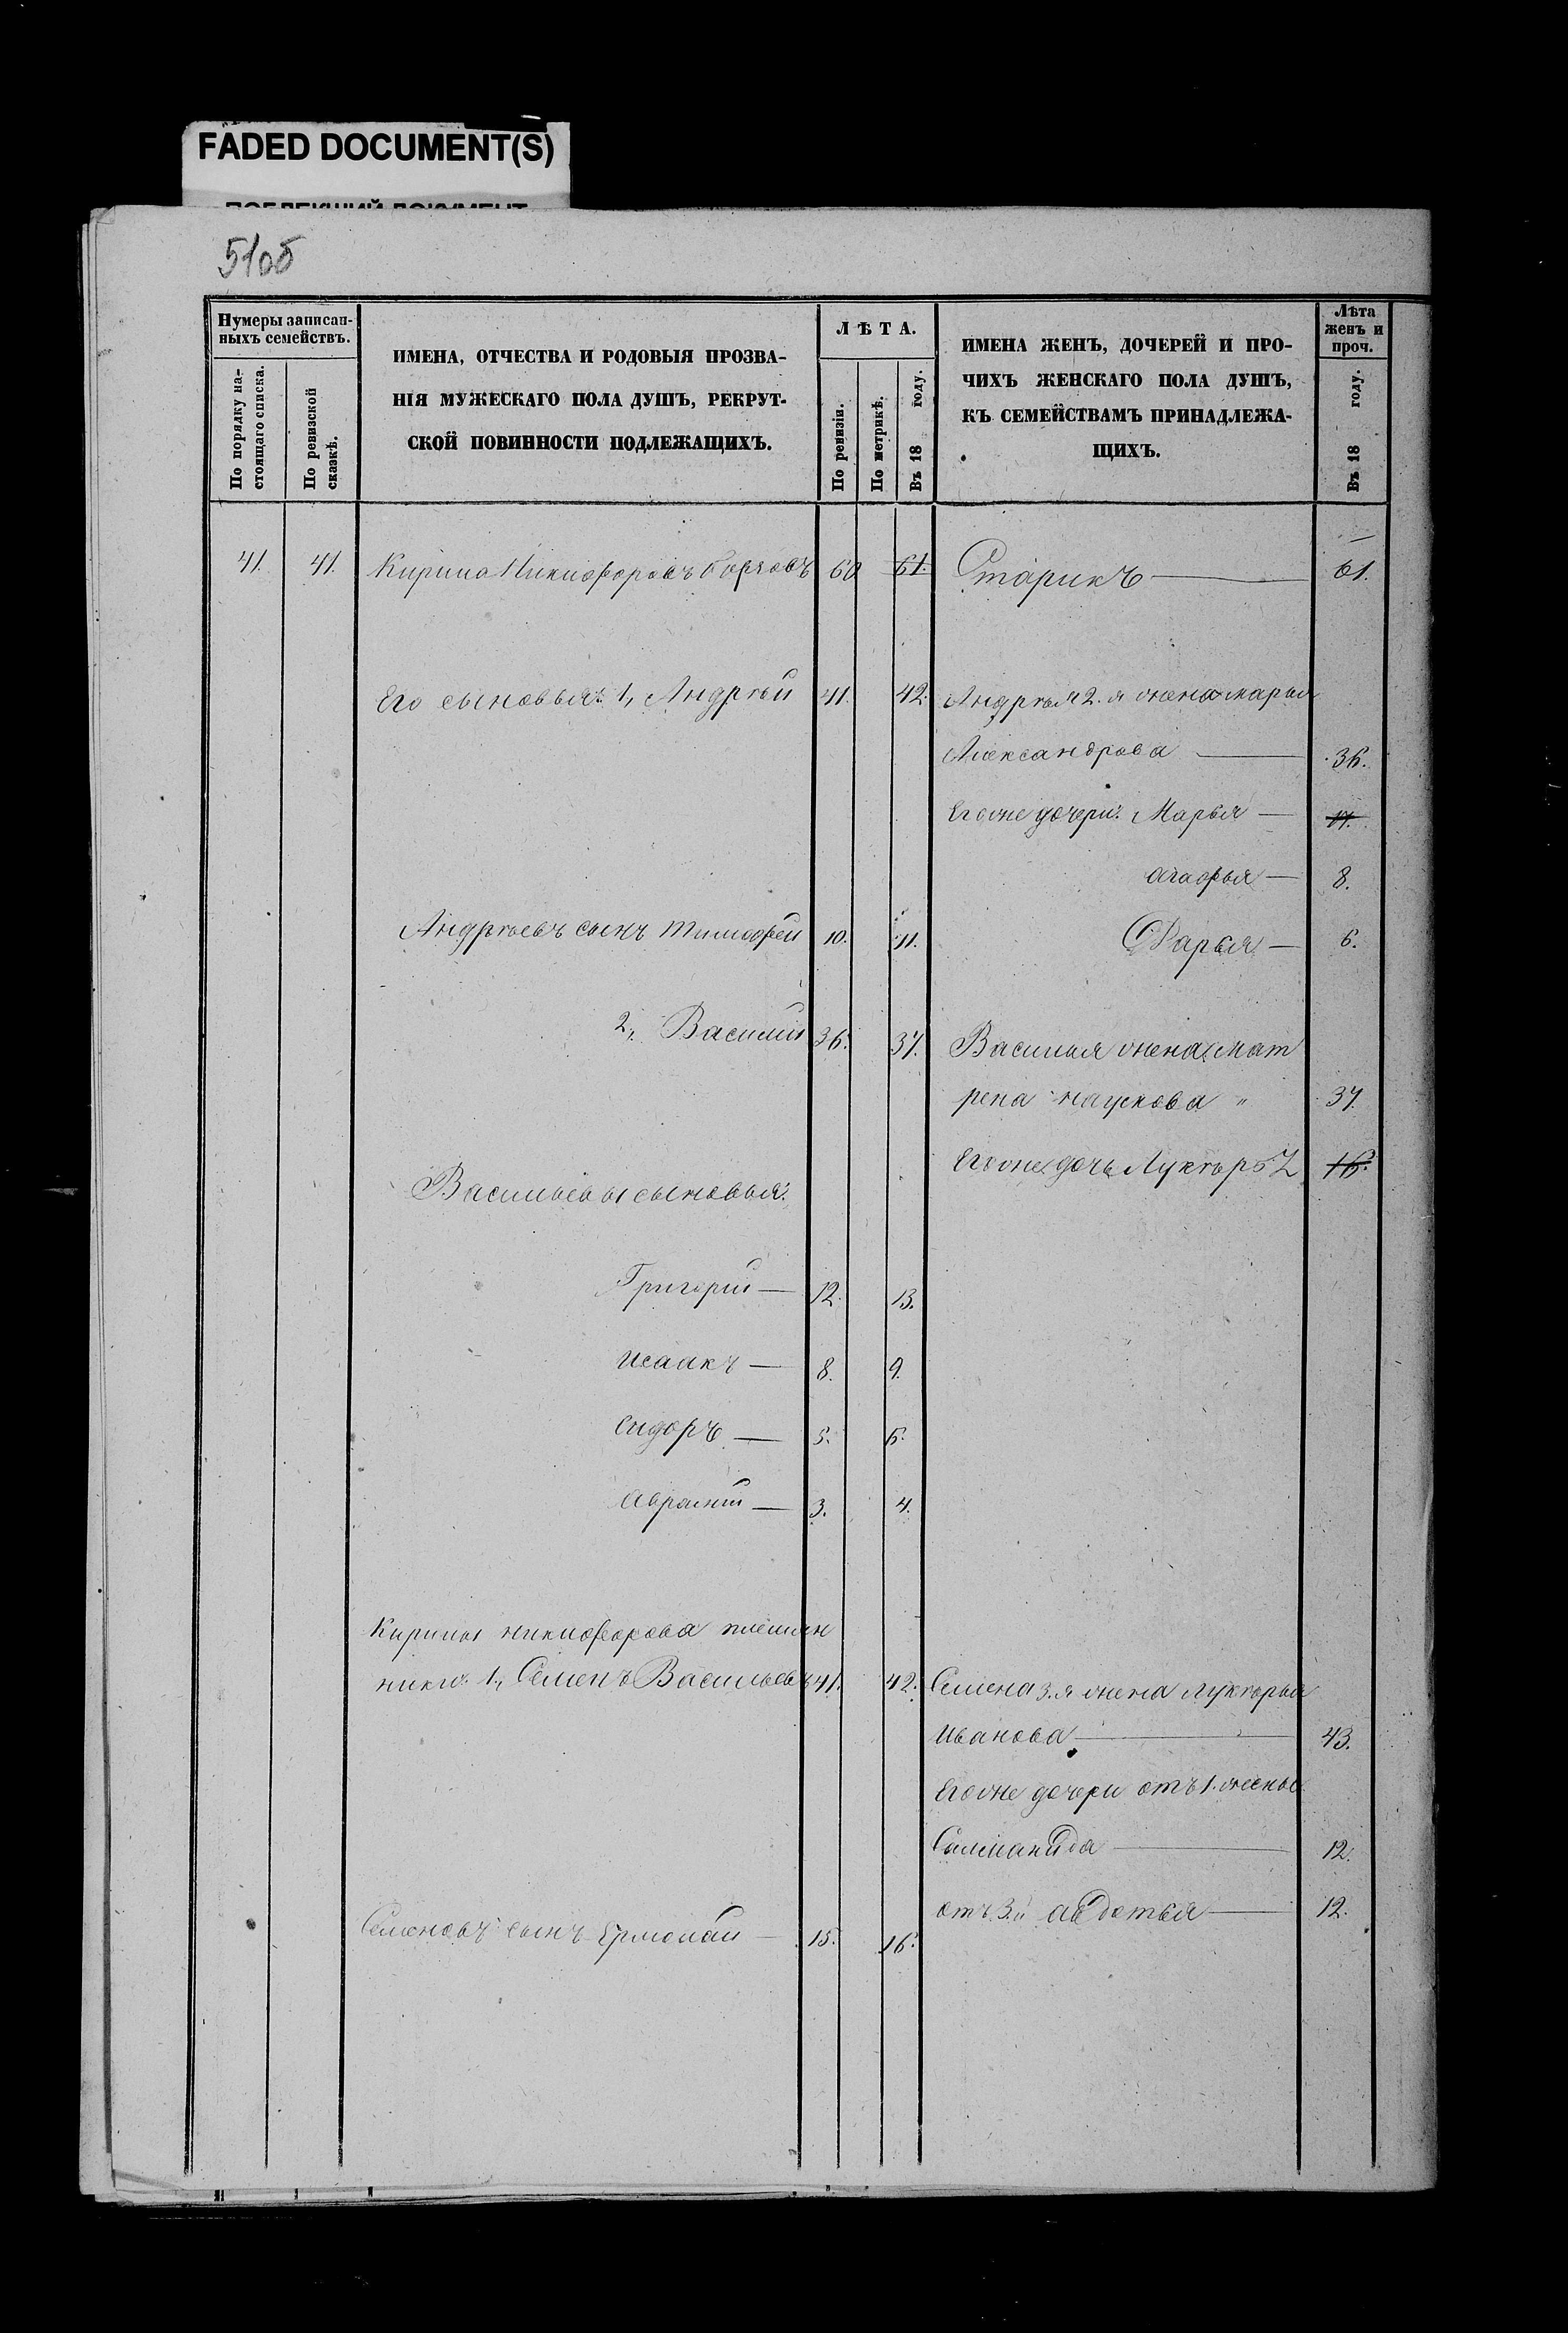 FADED DOCUMENT(S)
51об
Нумеры записан-
ныхъ семействъ.
По порядку на-
стоящаго списка.
По ревизской
сказкѣ.
ИМЕНА, ОТЧЕСТВА И РОДОВЫЯ ПРОЗВА-
НІЯ МУЖЕСКАГО ПОЛА ДУШЪ, РЕКРУТ-
СКОЙ ПОВИННОСТИ ПОДЛЕЖАЩИХЪ.
ЛѢТА.
По ревизіи.
По метрикѣ.
Въ 18 году.
ИМЕНА ЖЕНЪ, ДОЧЕРЕЙ И ПРО-
ЧИХЪ ЖЕНСКАГО ПОЛА ДУШЪ,
КЪ СЕМЕЙСТВАМЪ ПРИНАДЛЕЖА-
ЩИХЪ.
Лѣта
женъ и
проч.
Въ 18 году.
41. 41. Кирила Никифоровъ 60 61. Старикъ — 61.
Его сыновья: 1, Андрѣй 41. 42. Андрѣя 2.я жена марья
Александрова — 36.
Егоже дочери: Марья — 17.
агафья — 8.
Андрѣевъ сынъ тимофей 10. 11. Дарья — 6.
2, Василий 36. 37. Василья жена мат
рена 37.
Егоже дочь Лукѣрья 16.
Васильевы сыновья:
Григорий — 12. 13.
исаакъ — 8. 9.
сидоръ — 5. 6.
3. 4.
Кирилы никифорова племян
ники: 1, Семенъ Васильевъ 41. 42. Семена 3.я жена лукѣрья
иванова — 43.
Егоже дочери отъ 1. жены
— 12.
отъ 3.й авдотья — 12.
Семеновъ сынъ Ермолай — 15. 16.